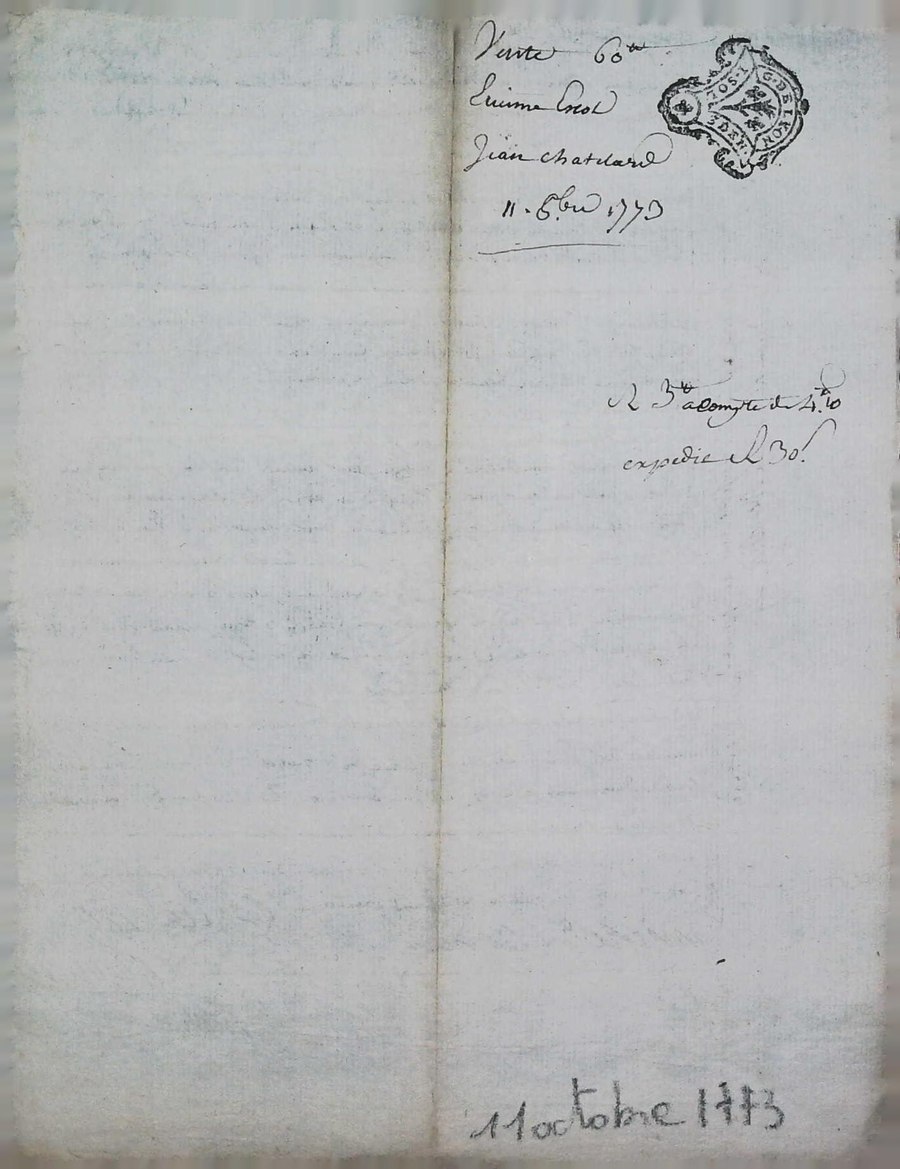 Vente 60tt
G. DE LYON
1. SOL
3 DEN.
Jean chatelard
11. 8bre 1773
R 3tt acompte de 4tt 10
expedie R 30s
11 octobre 1773